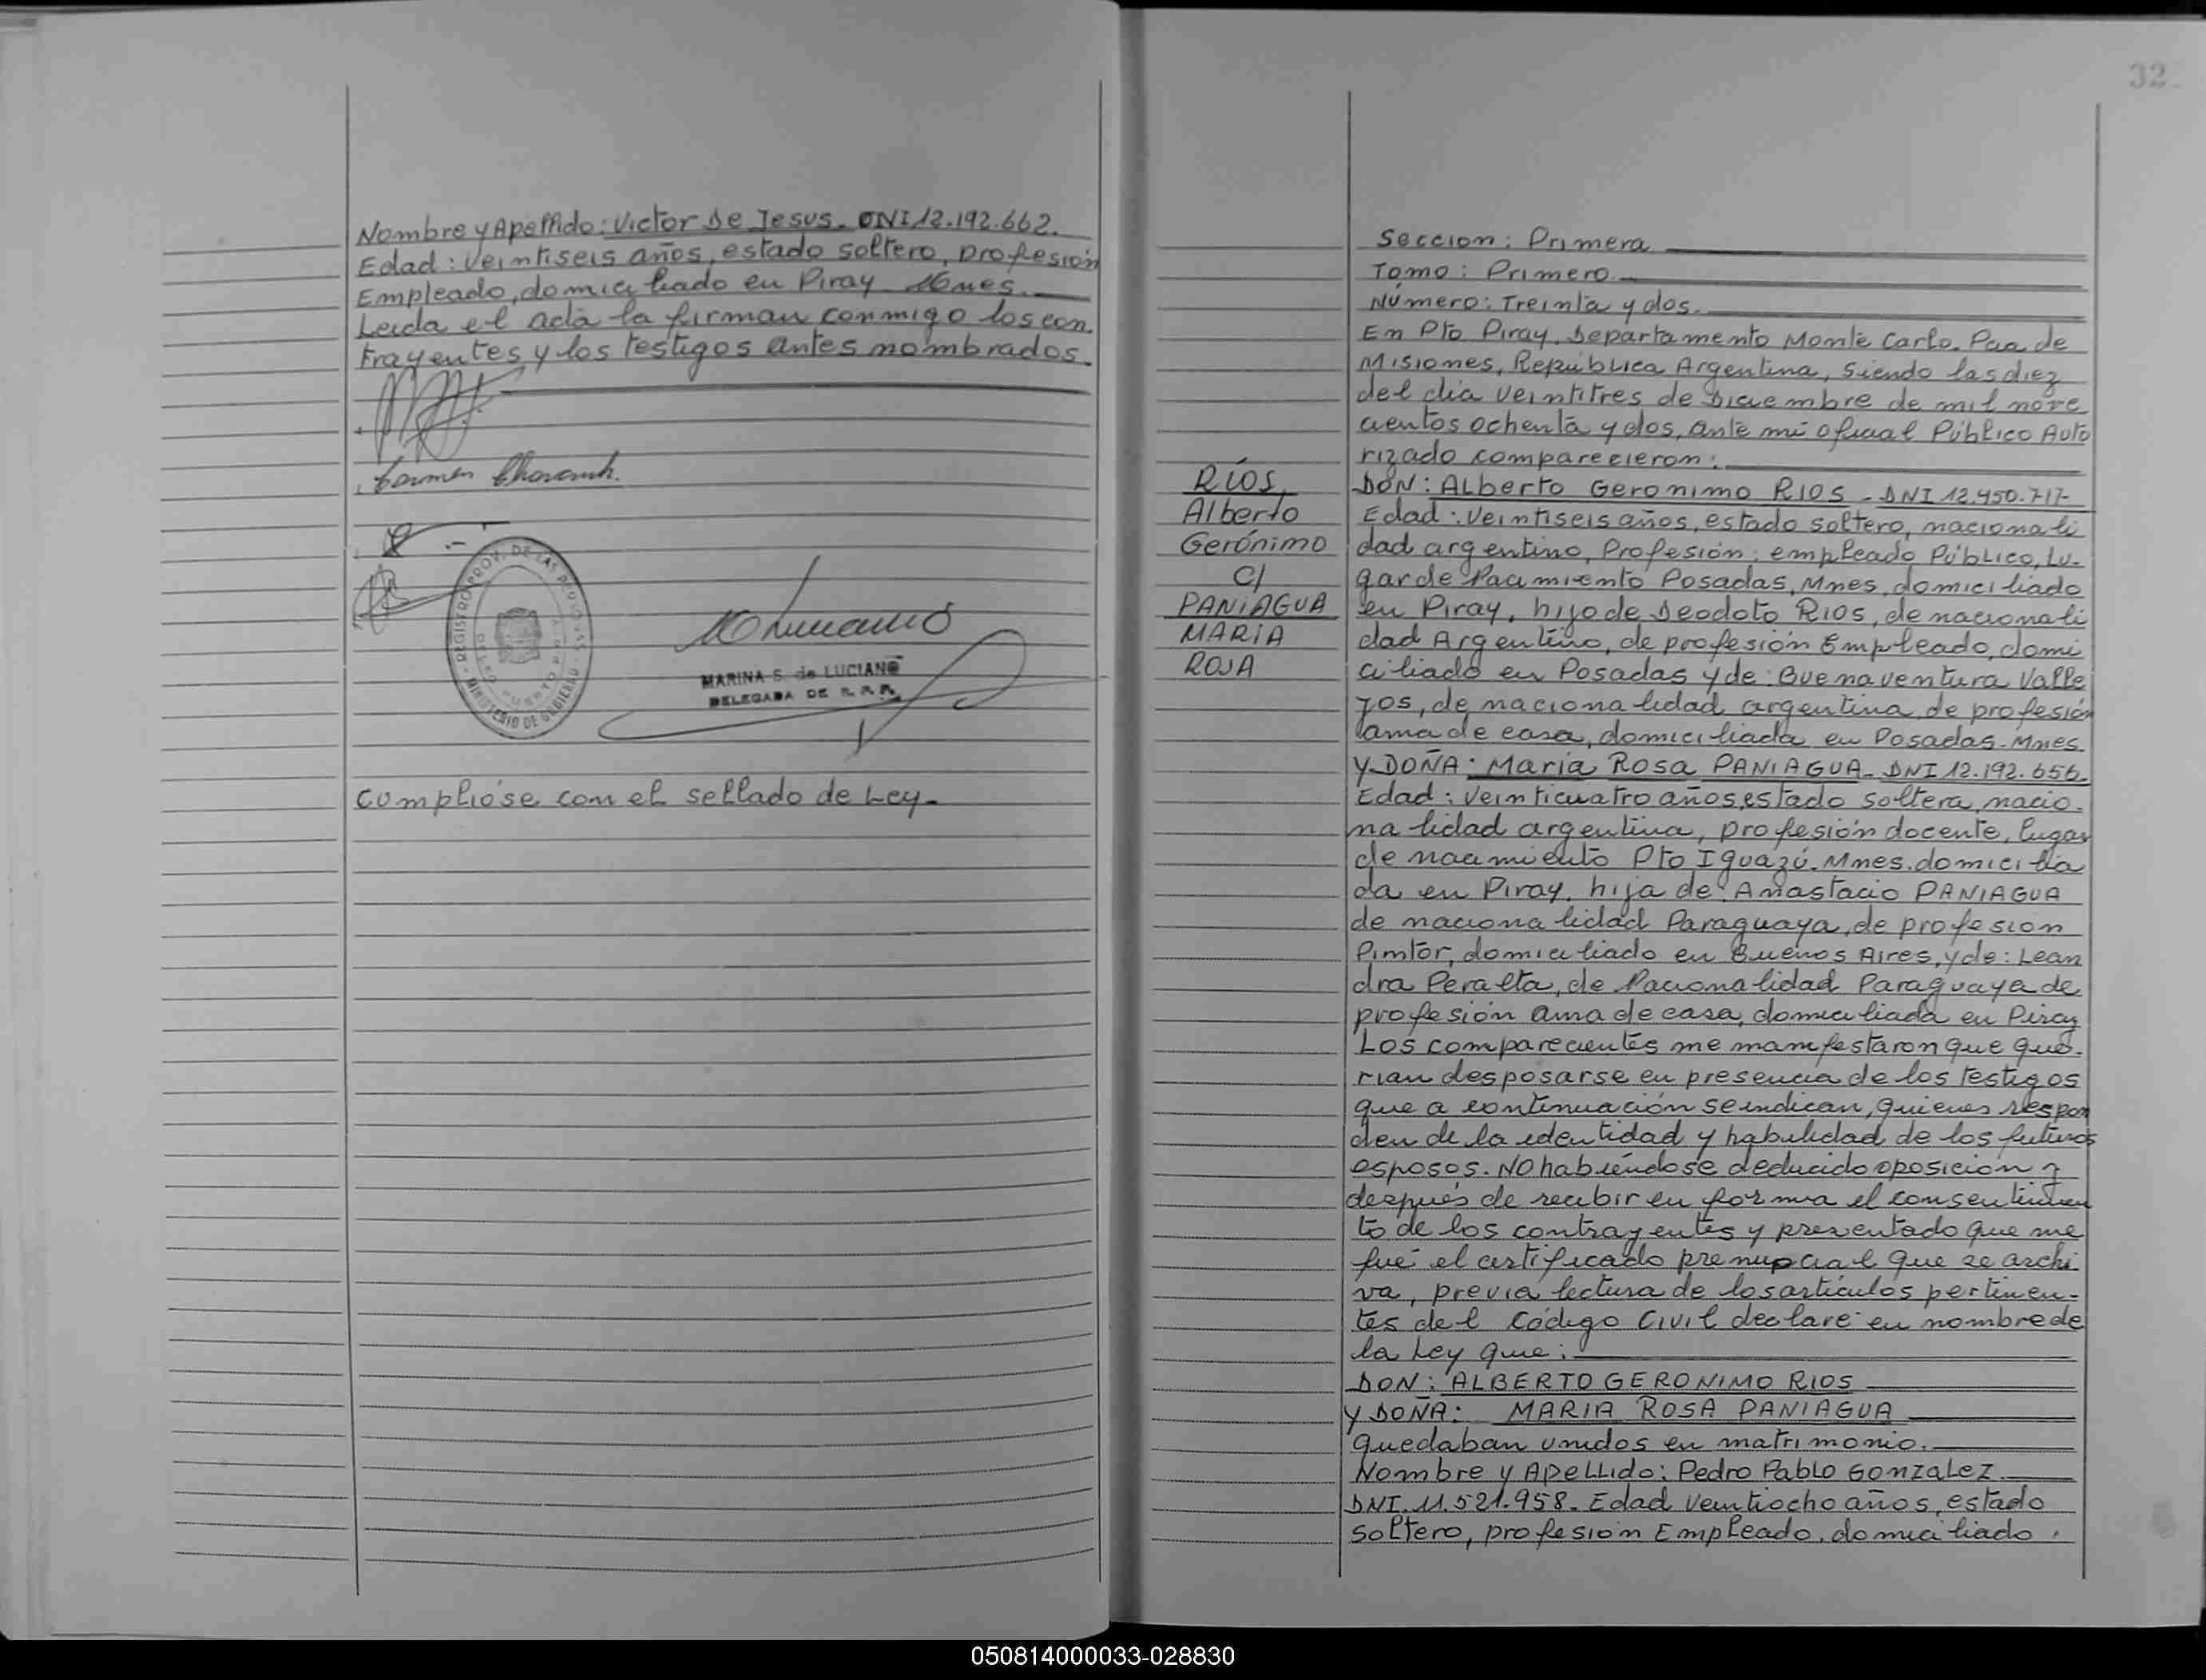 Nombre y Apellido: Victor De Jesus. DNI 12.192.662.
Edad: veintiseis años, estado soltero, profesión
Empleado, domiciliado en Piray Mnes.
Leida el acta la firman conmigo los con.
trayentes y los testigos antes nombrados.
REGISTRO PROV. DE LAS PERSONAS
MINISTERIO DE GOBIERNO
MARINA S. de LUCIANO
DELEGADA DE R. P. P.
Cumplióse con el sellado de Ley.
32
Seccion: Primera
Tomo: Primero
Número: Treinta y dos.
En Pto Piray, Departamento Monte Carlo. Pcia de
Misiones, República Argentina, Siendo las diez
del dia veintitres de Diciembre de mil nove
cientos ochenta y dos, ante mi Oficial Público Auto
rizado comparecieron:
RÍOS
Alberto
Gerónimo
C/
PANIAGUA
MARIA
ROSA
DON: Alberto Geronimo RIOS - DNI 12.450.717-
Edad: Veintiseis años, estado soltero, nacionali
dad argentino, Profesión: empleado Público, Lu-
gar de Nacimiento Posadas, Mnes, domiciliado
en Piray, hijo de Deodoto RIOS, de nacionali
dad Argentino, de profesión Empleado, domi
ciliado en Posadas y de: Buenaventura Valle
jos, de nacionalidad argentina de profesión
ama de casa, domiciliada en Posadas-Mnes.
Y DOÑA: Maria Rosa PANIAGUA - DNI 12.192.656.
Edad: Veinticuatro años, estado soltera, nacio-
nalidad argentina, profesión docente, lugar
de nacimiento Pto Iguazú. Mnes. domicilia
da en Piray, hija de: Anastacio PANIAGUA
de nacionalidad Paraguaya, de profesion
Pintor, domiciliado en Buenos Aires, y de: Lean
dra Peralta, de Nacionalidad Paraguaya de
profesión ama de casa, domiciliada en Piray
Los comparecientes me manifestaron que que-
rian desposarse en presencia de los testigos
que a continuación se indican, quienes respon
den de la identidad y habilidad de los futuros
esposos. No habiéndose deducido oposición y
después de recibir en forma el consentimien
to de los contrayentes y presentado que me
fué el certificado prenupcial que se archi
va, previa lectura de los artículos pertinen-
tes del Código Civil declaré en nombre de
la Ley que:
DON: ALBERTO GERONIMO RIOS
Y DOÑA: MARIA ROSA PANIAGUA
quedaban unidos en matrimonio.
Nombre y Apellido: Pedro Pablo Gonzalez.
DNI. 11.521.958. Edad Veintiocho años, estado
soltero, profesión Empleado, domiciliado
050814000033-028830